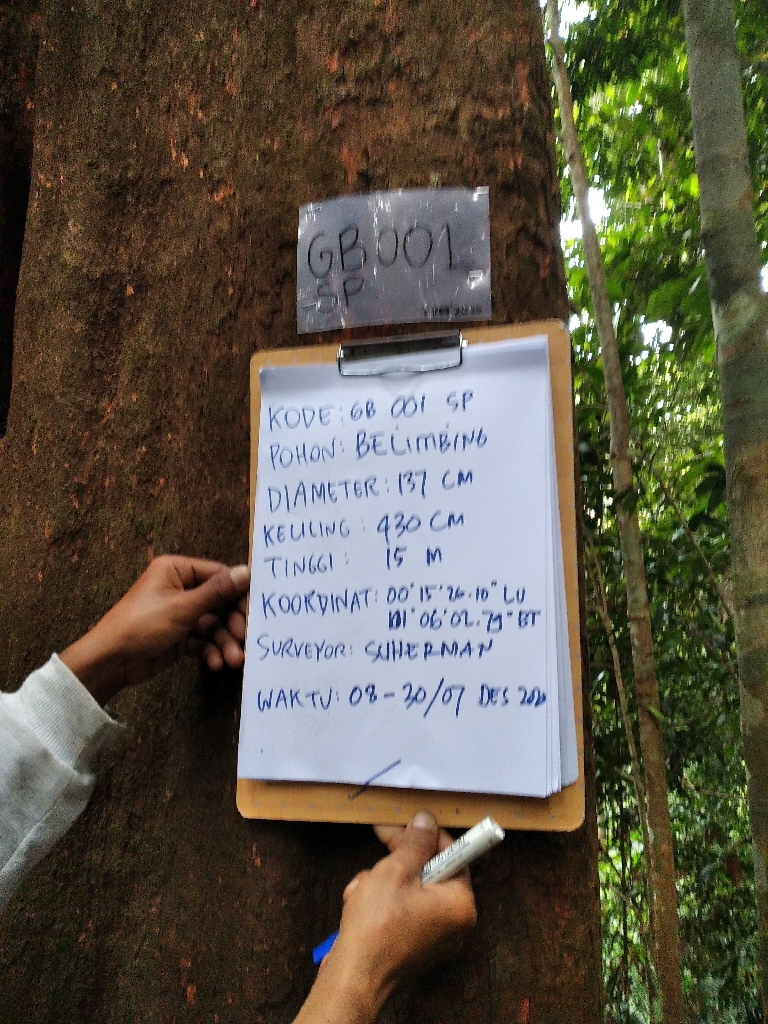 GB001
SP
KODE: GB 001 SP
POHON: BELIMBING
DIAMETER: 137 CM
KELILING: 430 CM
TINGGI: 15 M
KOORDINAT: 00°15'26.10" LU
111°06'02.79" BT
SURVEYOR: SUHERMAN
WAKTU: 08-30/07 DES 2020